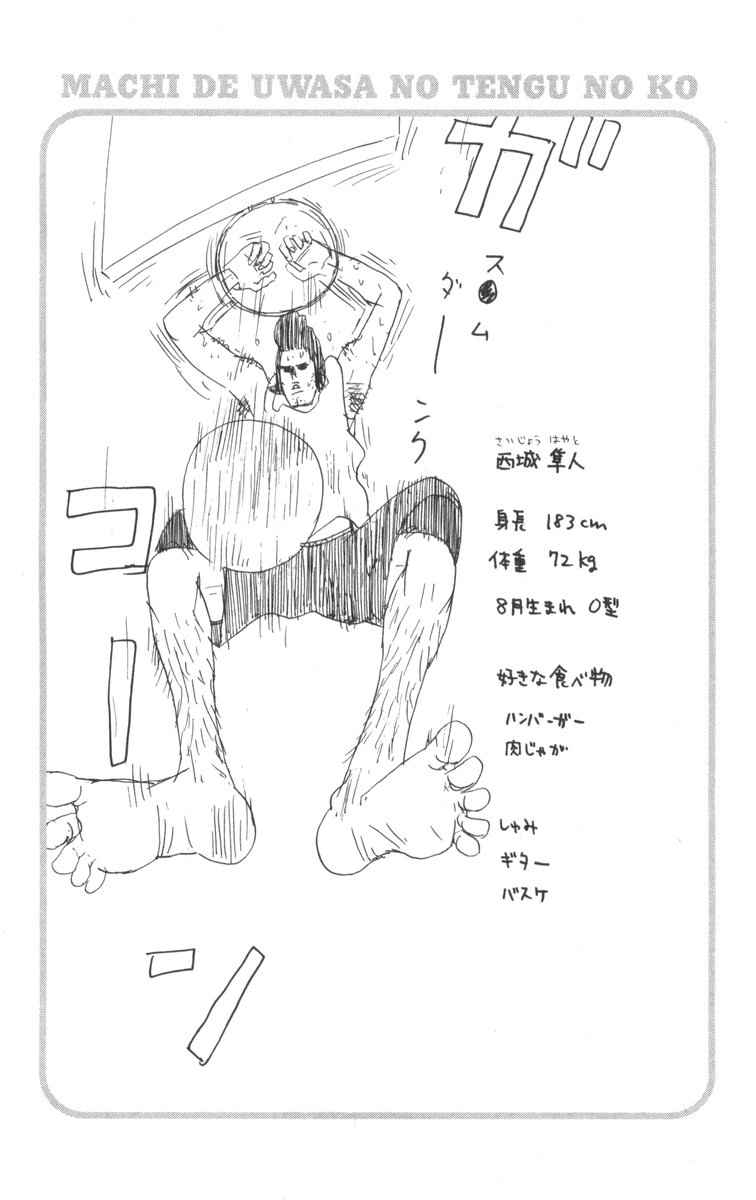 MACHI DE UWASA NO TENGU NO KO
ガ
コ
ー
ン
ス●ム
ダーンク
さいじょう はやと
西城 隼人
身長 183cm
体重 72kg
8月生まれ O型
好きな食べ物
ハンバーガー
肉じゃが
しゅみ
ギター
バスケ